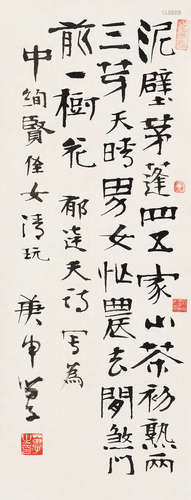 泥壁茅蓬四五家山茶初熟两
三芽天晴男女忙農去閒煞门
前一樹花 郁達夫詩 写為
中絢賢侄女清玩
庚申